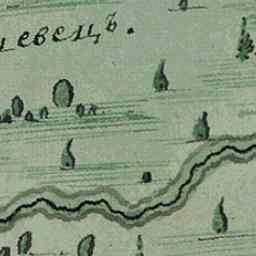 цевецъ.